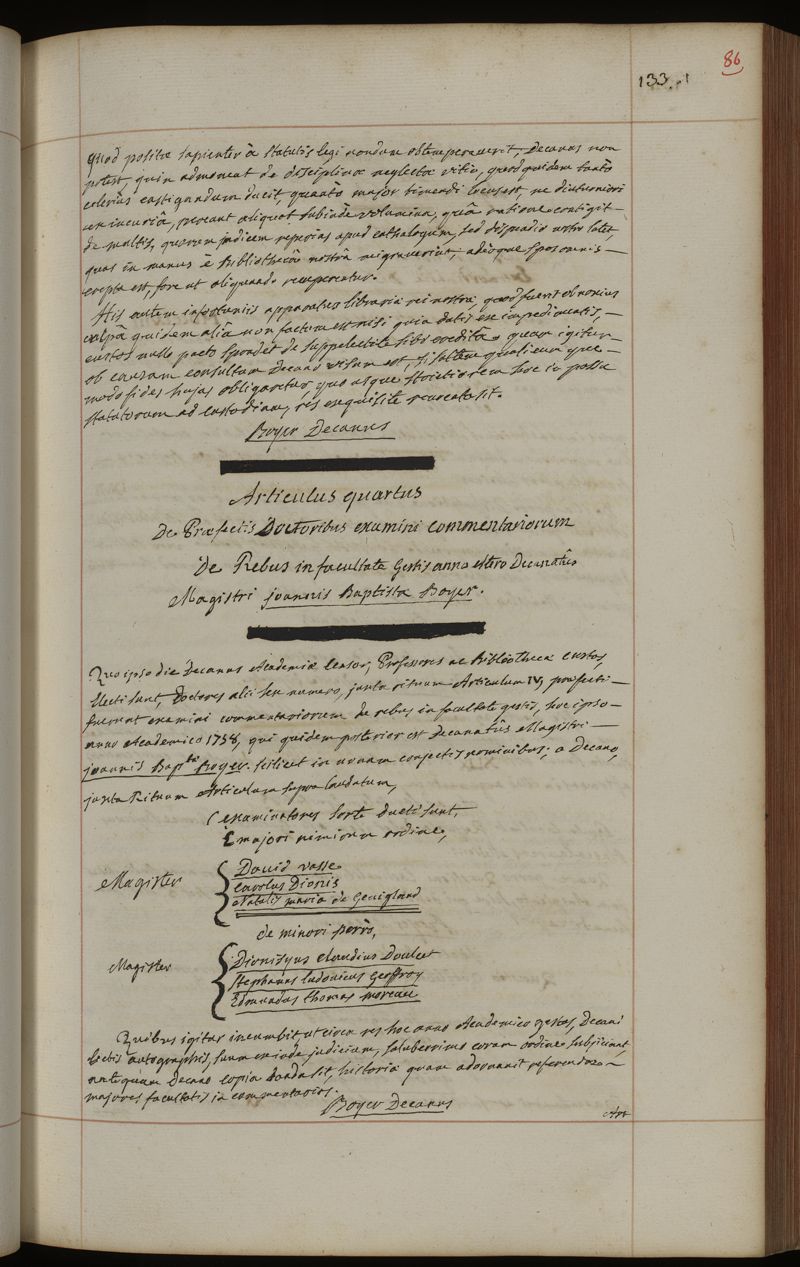 86
133.
quod positæ sapienter à statutis legi nondum obtemperaverit, Decanus non
potest, quin admoneat de disciplinæ neglectæ vitio, quod quidem tantò
celeriùs castigandum ducit, quantò major timendi locus est, ne diuturniori
incuriâ, pereant aliquot subinde volumina, quâ ratione contigit
de multis, quorum indicem reperias apud cathalogum, sed
quas in manus è Bibliothecâ nostrâ migraverint, adeoque spes omnis
erepta est, fore ut aliquando recuperentur.
His autem infortuniis apparatus librariæ rei nostræ, quod fuerit obnoxius
culpâ quidem aliâ non factum est nisi quia datis ex impedimentis,
custos nullo pacto spondet de suppellectile sibi creditâ. quam igitur
ob causam consultum Decano visum est, si saltem qualicumque
modo fides hujus obligaretur, quo usque strictiorem hoc in
statutorum ad custodiam, res exquisitè revocata sit.
Boyer Decanus
Articulus quartus
De Præfectis Doctoribus examini commentariorum
De Rebus in facultate Gestis anno altero Decanatûs
Magistri joannis Baptistæ Boyer.
Quo ipso die Decanus Academiæ Censor, Professores ac Bibliothecæ custos,
Electi sunt, Doctores alii sex numero, juxta rituum Articulum IV, præfecti
fuerunt examini commentariorum de rebus in facultate gestis, hoc ipso
anno Academico 1758, qui quidem posterior est Decanatûs Magistri
joannis Bap.tæ Boyer. scilicet in urnam conjectis nominibus, a Decano,
juxta Rituum Articulum supra laudatum,
examinatores sorte ducti sunt,
E majori nimirum ordine,
Magister
David vasse
carolus Dionis
Natalis maria de Gevigland
de minori porrò,
Magister
Dionisyus claudius Doulcet
Stephanus ludovicus Geoffroy
Edmundus thomas moreau
Quibus igitur incumbit, ut circa res hoc anno Academico gestas, Decani
autographis, suum exinde judicium, saluberrimo coram ordine subjiciant,
antequam Decano copia danda sit, historiæ quam adornavit referendæ
majores facultatis in commentarios.
Boyer Decanus
Art